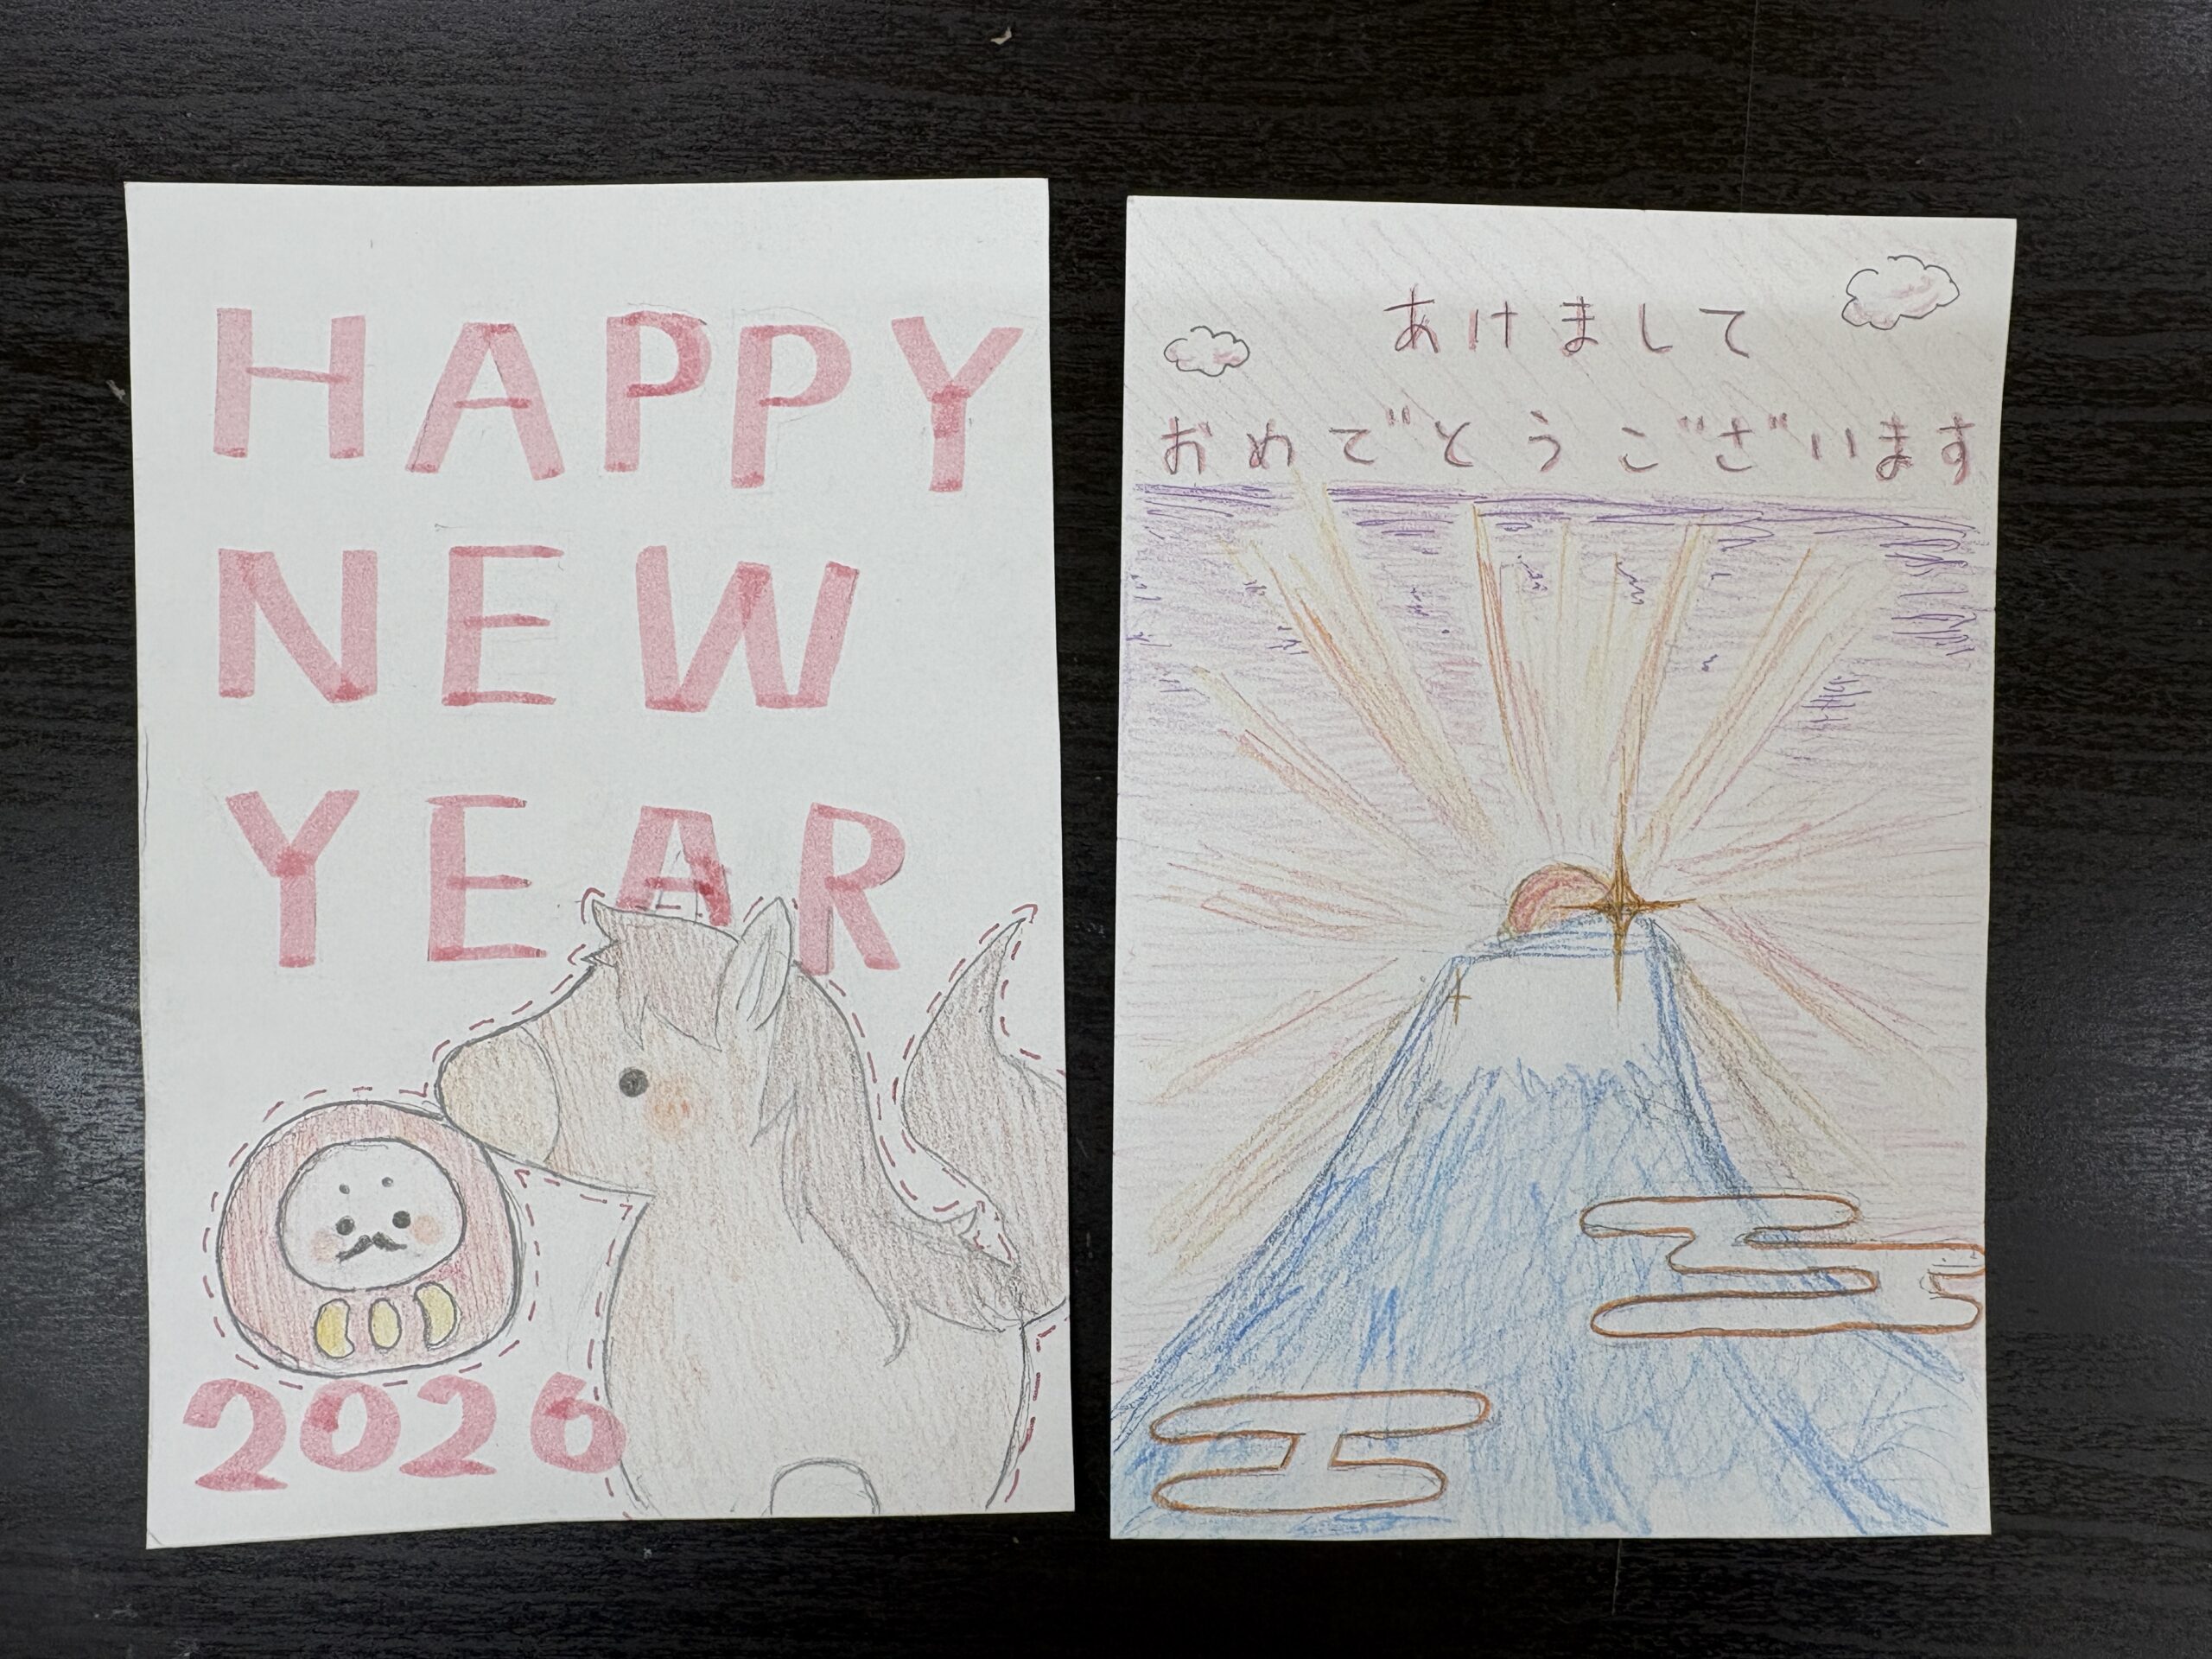 HAPPY
NEW
YEAR
2026
あけまして
おめでとうございます